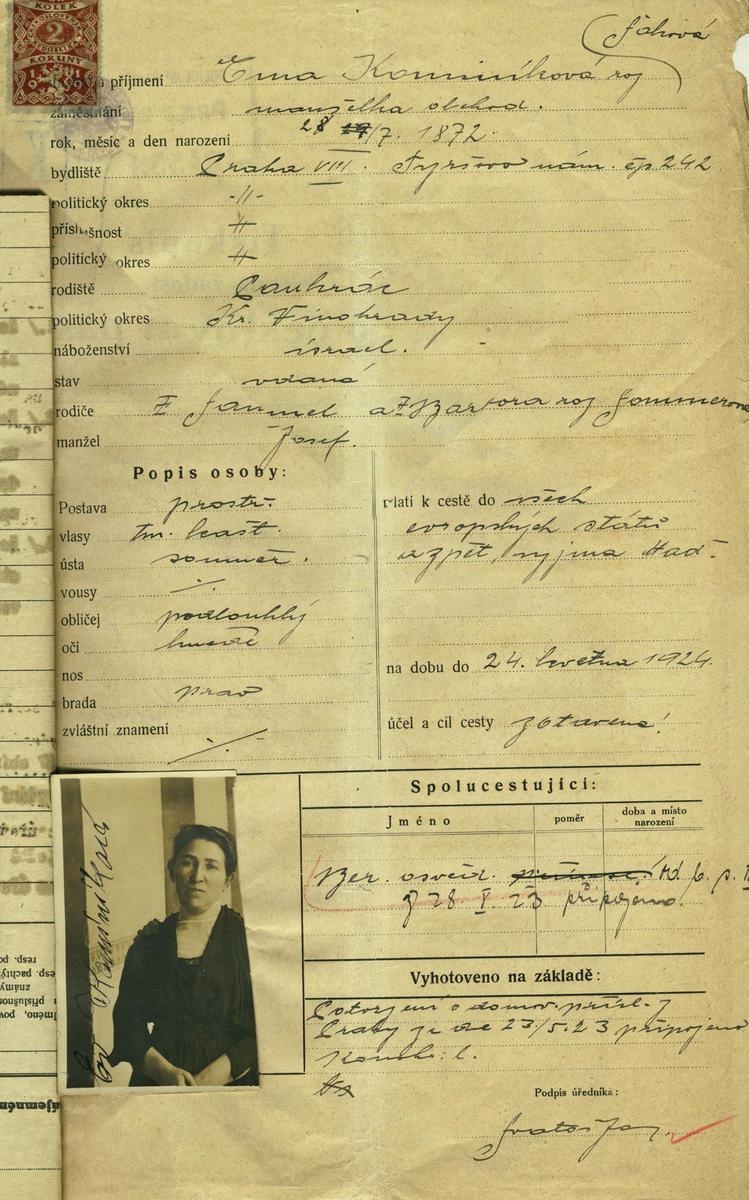 KOLEK
2
KORUNY
1919
a příjmení Ema Kominíková roj
zaměstnání manželka obchod.
rok, měsíc a den narození 28 /7. 1872.
bydliště Praha VIII. Tyršovo nám. čp 242
politický okres -"-
příslušnost "
politický okres "
rodiště Pankrác
politický okres Kr. Vinohrady
náboženství israel.
stav vdaná
rodiče Samuel a Barbora roj
manžel Josef.
Popis osoby:
Postava prostř.
vlasy tm. kašt.
ústa souměr.
vousy ·/.
obličej podlouhlý
oči hnědé
nos
brada prav
zvláštní znamení ·/.
Platí k cestě do všech
evropských států
a zpět, vyjma Maď-
na dobu do 24. května 1924.
účel a cíl cesty zotavená!
Spolucestující:
Jméno poměr doba a místo narození
Ber. osvěd.
z 28. V. 23 připojeno.
Vyhotoveno na základě:
Potvrzení o domov. přísl. z
Prahy ze dne 23/5.23 připojeno
Podpis úředníka: